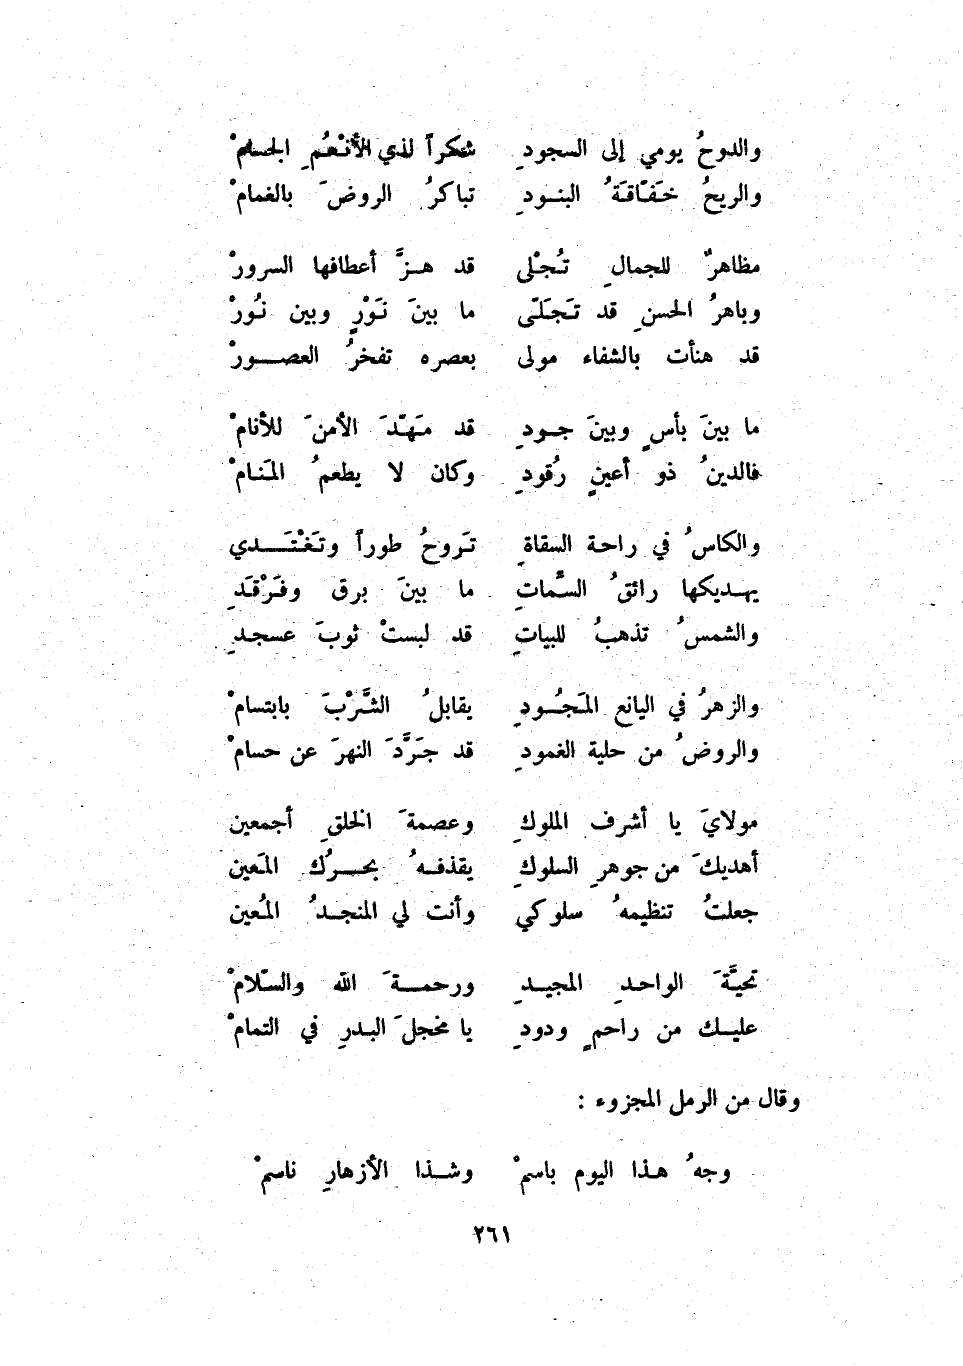 والدوحُ يومي إلى السجودِ شكراً لذي الأنْعُمِ الجسامْ
والريحُ خَفّاقَةُ البنودِ تباكرُ الروضَ بالغمامْ
مظاهرٌ للجمالِ تُجْلى قد هزَّ أعطافها السرورْ
وباهرُ الحسنِ قد تَجَلّى ما بينَ نَوْرٍ وبين نُورْ
قد هنأت بالشفاء مولى بعصره تفخرُ العصورْ
ما بينَ بأسٍ وبينَ جودِ قد مَهّدَ الأمنَ للأنامْ
فالدينُ ذو أعينٍ رُقودِ وكان لا يطعمُ المَنامْ
والكاسُ في راحة السقاةِ تَروحُ طوراً وتَغْتَدي
يهديكها رائقُ السَّماتِ ما بينَ برق وفَرْقَدِ
والشمسُ تذهبُ للبياتِ قد لبستْ ثوبَ عسجدِ
والزهرُ في اليانع المَجُودِ يقابلُ الشَّرْبَ بابتسامْ
والروضُ من حلية الغمودِ قد جَرَّدَ النهرَ عن حسامْ
مولايَ يا أشرف الملوكِ وعصمةَ الخلقِ أجمعين
أهديكَ من جوهرِ السلوكِ يقذفهُ بحرُك المَعين
جعلتُ تنظيمهُ سلوكي وأنت لي المنجدُ المُعين
تحيَّةَ الواحدِ المجيدِ ورحمةَ الله والسّلامْ
عليك من راحمٍ ودودِ يا مخجلَ البدرِ في التمامْ
وقال من الرمل المجزوء :
وجهُ هذا اليوم باسمْ وشذا الأزهارِ ناسمْ
٢٦١